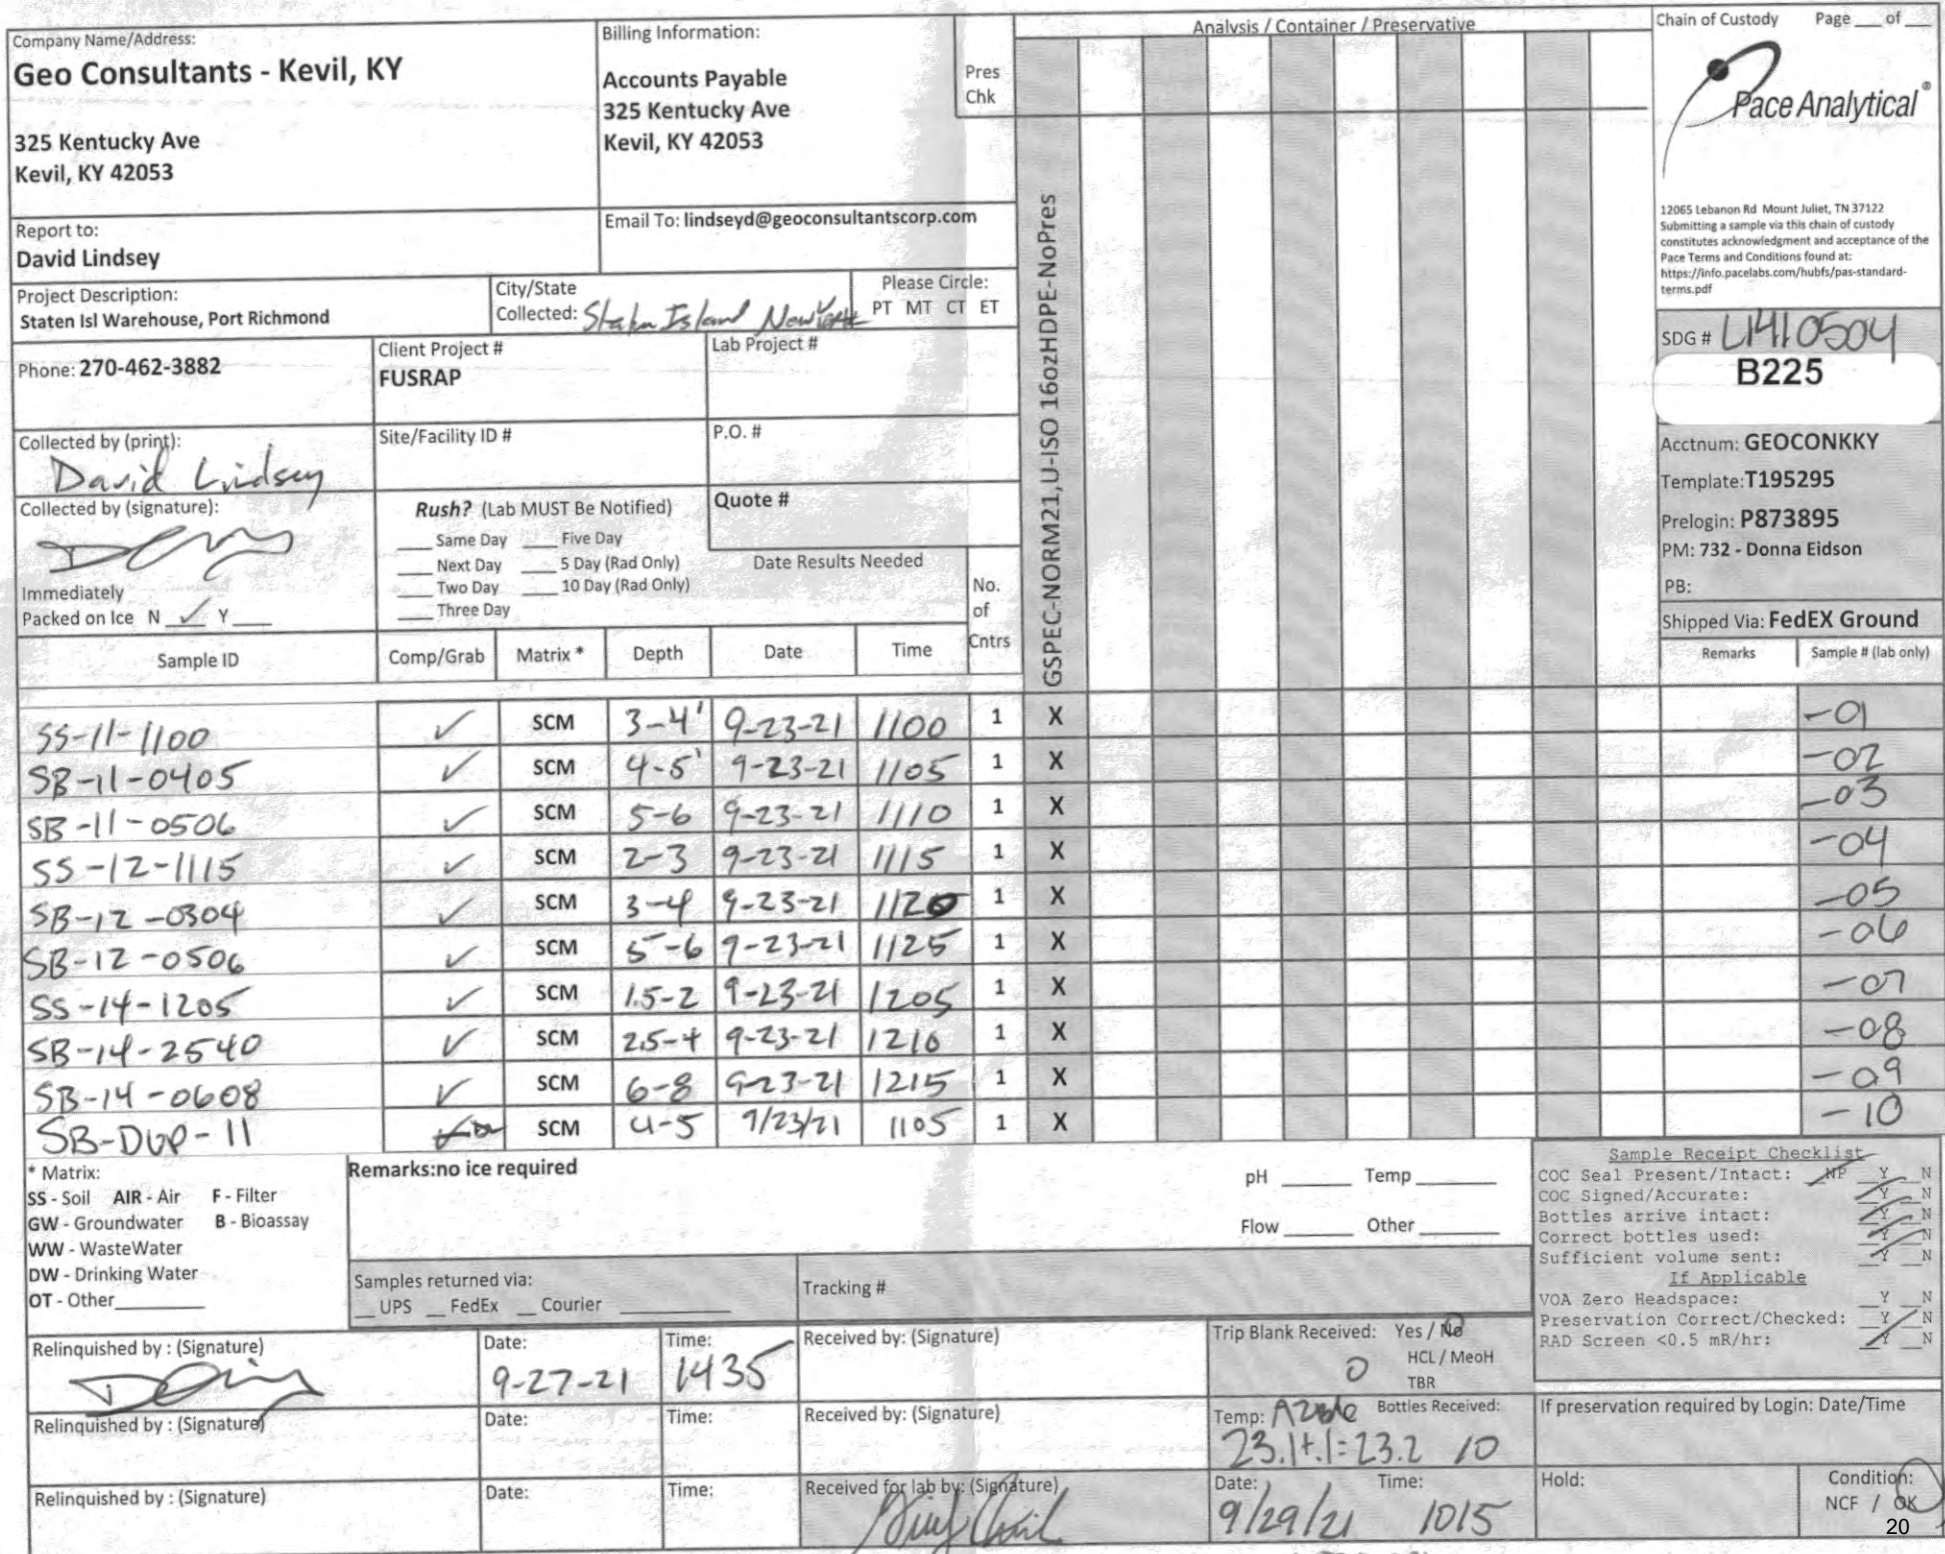 Company Name/Address:
Geo Consultants - Kevil, KY
325 Kentucky Ave
Kevil, KY 42053
Billing Information:
Accounts Payable
325 Kentucky Ave
Kevil, KY 42053
Pres
Chk
Analysis / Container / Preservative
Chain of Custody Page ___ of ___
Pace Analytical®
12065 Lebanon Rd Mount Juliet, TN 37122
Submitting a sample via this chain of custody
constitutes acknowledgment and acceptance of the
Pace Terms and Conditions found at:
https://info.pacelabs.com/hubfs/pas-standard-
terms.pdf
Report to:
David Lindsey
Email To: lindseyd@geoconsultantscorp.com
Project Description:
Staten Isl Warehouse, Port Richmond
City/State
Collected: Staten Island New York
Please Circle:
PT MT CT ET
Phone: 270-462-3882
Client Project #
FUSRAP
Lab Project #
SDG # L1410504
B225
Collected by (print):
David Lindsey
Site/Facility ID #
P.O. #
Acctnum: GEOCONKKY
Template:T195295
Prelogin: P873895
PM: 732 - Donna Eidson
PB:
Shipped Via: FedEX Ground
Collected by (signature):
Rush? (Lab MUST Be Notified)
___ Same Day ___ Five Day
___ Next Day ___ 5 Day (Rad Only)
___ Two Day ___ 10 Day (Rad Only)
___ Three Day
Quote #
Date Results Needed
No.
of
Cntrs
Immediately
Packed on Ice N ✓ Y ___
GSPEC-NORM21,U-ISO 16ozHDPE-NoPres
Sample ID Comp/Grab Matrix * Depth Date Time Remarks Sample # (lab only)
SS-11-1100 ✓ SCM 3-4' 9-23-21 1100 1 X -01
SB-11-0405 ✓ SCM 4-5' 9-23-21 1105 1 X -02
SB-11-0506 ✓ SCM 5-6 9-23-21 1110 1 X -03
SS-12-1115 ✓ SCM 2-3 9-23-21 1115 1 X -04
SB-12-0304 ✓ SCM 3-4 9-23-21 1120 1 X -05
SB-12-0506 ✓ SCM 5-6 9-23-21 1125 1 X -06
SS-14-1205 ✓ SCM 1.5-2 9-23-21 1205 1 X -07
SB-14-2540 ✓ SCM 2.5-4 9-23-21 1210 1 X -08
SB-14-0608 ✓ SCM 6-8 9-23-21 1215 1 X -09
SB-DUP-11 SCM 4-5 9/23/21 1105 1 X -10
* Matrix:
SS - Soil AIR - Air F - Filter
GW - Groundwater B - Bioassay
WW - WasteWater
DW - Drinking Water
OT - Other
Remarks:no ice required
pH ___ Temp ___
Flow ___ Other ___
Sample Receipt Checklist
COC Seal Present/Intact: NP Y N
COC Signed/Accurate: Y N
Bottles arrive intact: Y N
Correct bottles used: Y N
Sufficient volume sent: Y N
If Applicable
VOA Zero Headspace: Y N
Preservation Correct/Checked: Y N
RAD Screen <0.5 mR/hr: Y N
Samples returned via:
__ UPS __ FedEx __ Courier
Tracking #
Relinquished by : (Signature)
Date:
9-27-21
Time:
1435
Received by: (Signature)
Trip Blank Received: Yes / No
0
HCL / MeoH
TBR
Relinquished by : (Signature)
Date:
Time:
Received by: (Signature)
Temp: Bottles Received:
23.1+.1=23.2 10
If preservation required by Login: Date/Time
Relinquished by : (Signature)
Date:
Time:
Received for lab by: (Signature)
Date:
9/29/21
Time:
1015
Hold:
Condition:
NCF / OK
20